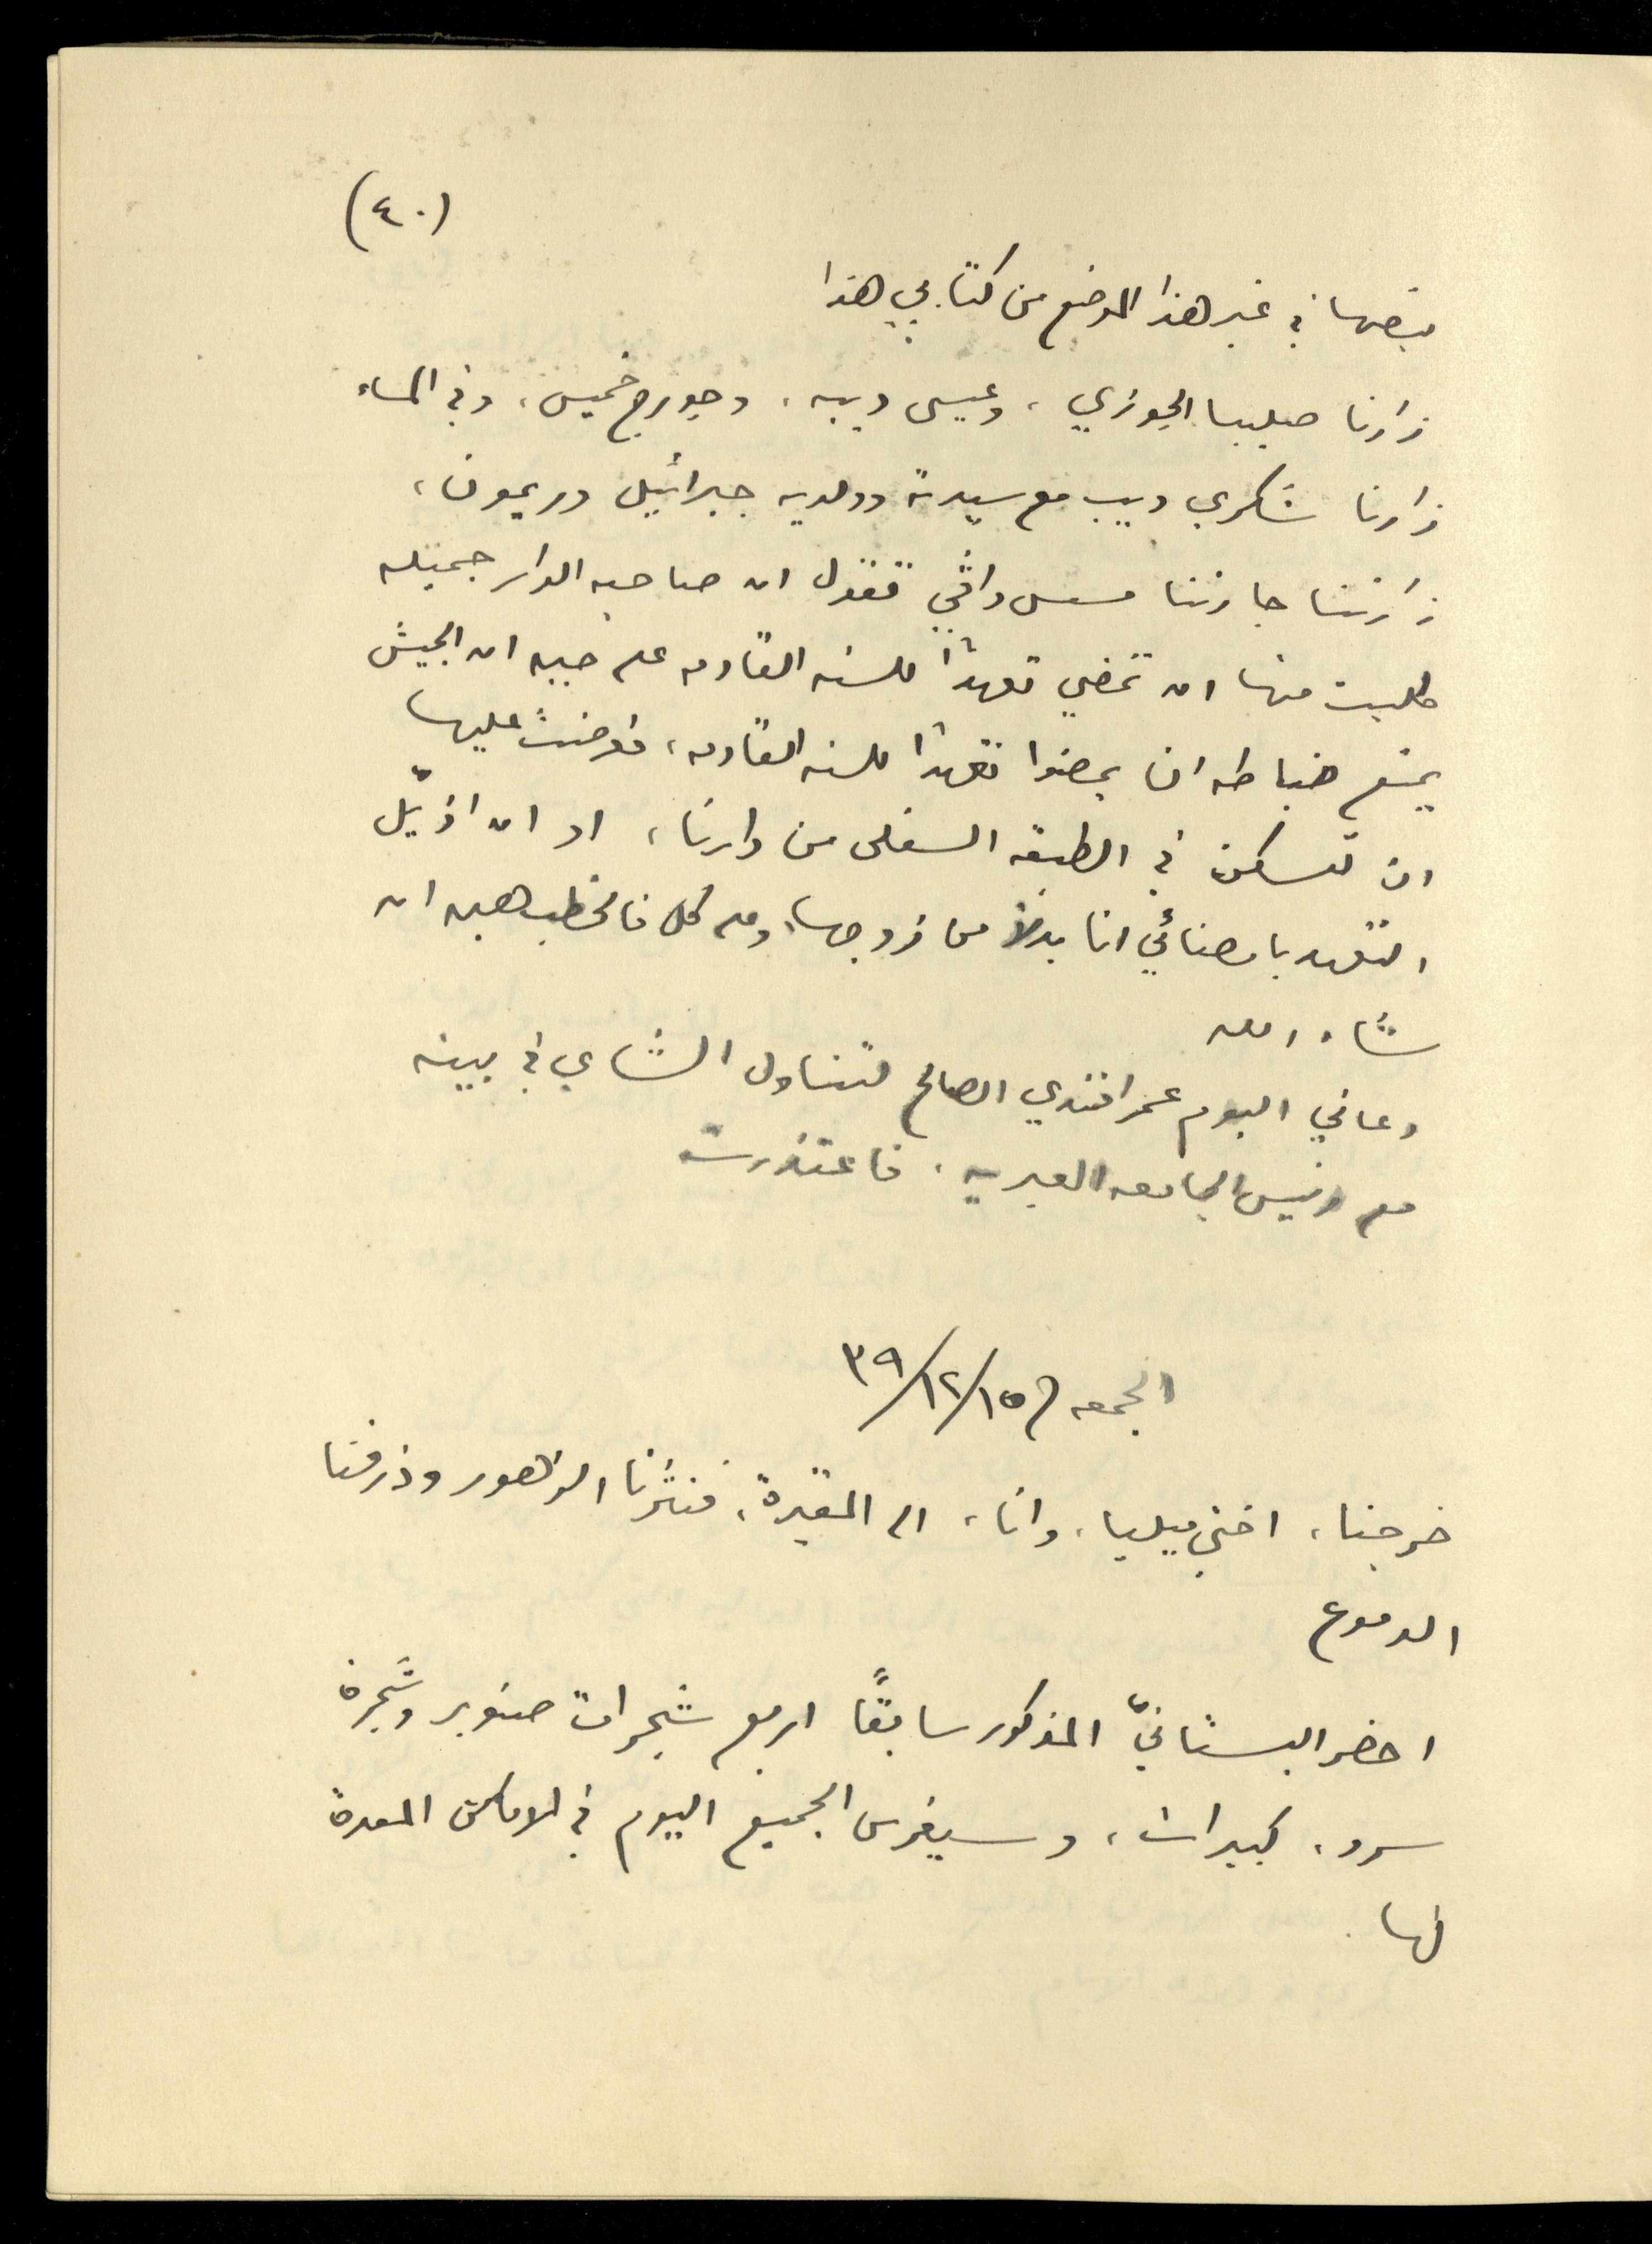 (٤٠)
بنصها في غير هذا الموضع من كتابي هذا
زارنا صليبا الجوزي، وعيسى ديبه، وجورج خميس، وفي المساء
زارنا شكري ديب مع سيدته وولديه جبرائيل وريمون،
زارتنا جارتنا مسس فقول ان صاحبه الدار جميله
طلبت منها ان تمضي تعهداً للسنه القادمه على حين ان الجيش
يمنع ضباطه ان يمضوا تعهداً للسنه القادمه، فعرضت عليها
ان تسكن في الطبقه السفلى من دارنا، او ان اذيّل
التعهد بامضائي انا بدلاً من زوجها، وعلى كل فالخطب هين ان
شاء الله
دعاني اليوم عمر افندي الصالح لتناول الشاي في بيته
مع رئيس الجامعه العبريه، فاعتذرت
الجمعه في ١٥/١٢/٣٩
خرجنا، اختي ميليا، وانا، الى المقبرة، فنثرنا الزهور وذرفنا
الدموع
احضر البستانيّ المذكور سابقاً اربع شجرات صنوبر وشجرة
سرو، كبيرات، وسيغرس الجميع اليوم في الاماكن المعدة
لها.